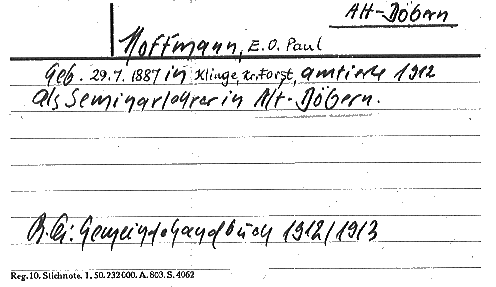 Alt-Döbern
Hoffmann, E.O. Paul
Geb. 29.7.1887 in Klinge, Kr. Forst, amtierte 1912
als Seminarlehrer in Alt-Döbern.
Gemeindehandbuch 1912/1913
Reg. 10. Stichnote. 1. 50. 232000. A. 803. S. 4062